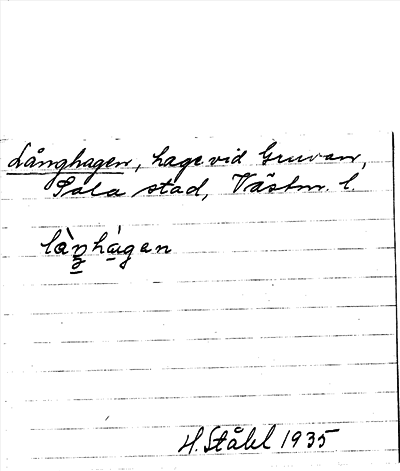 Långhagen, hage vid Gruvan,
Sala stad, Västm. l.
làŋhágen
H. Ståhl 1935